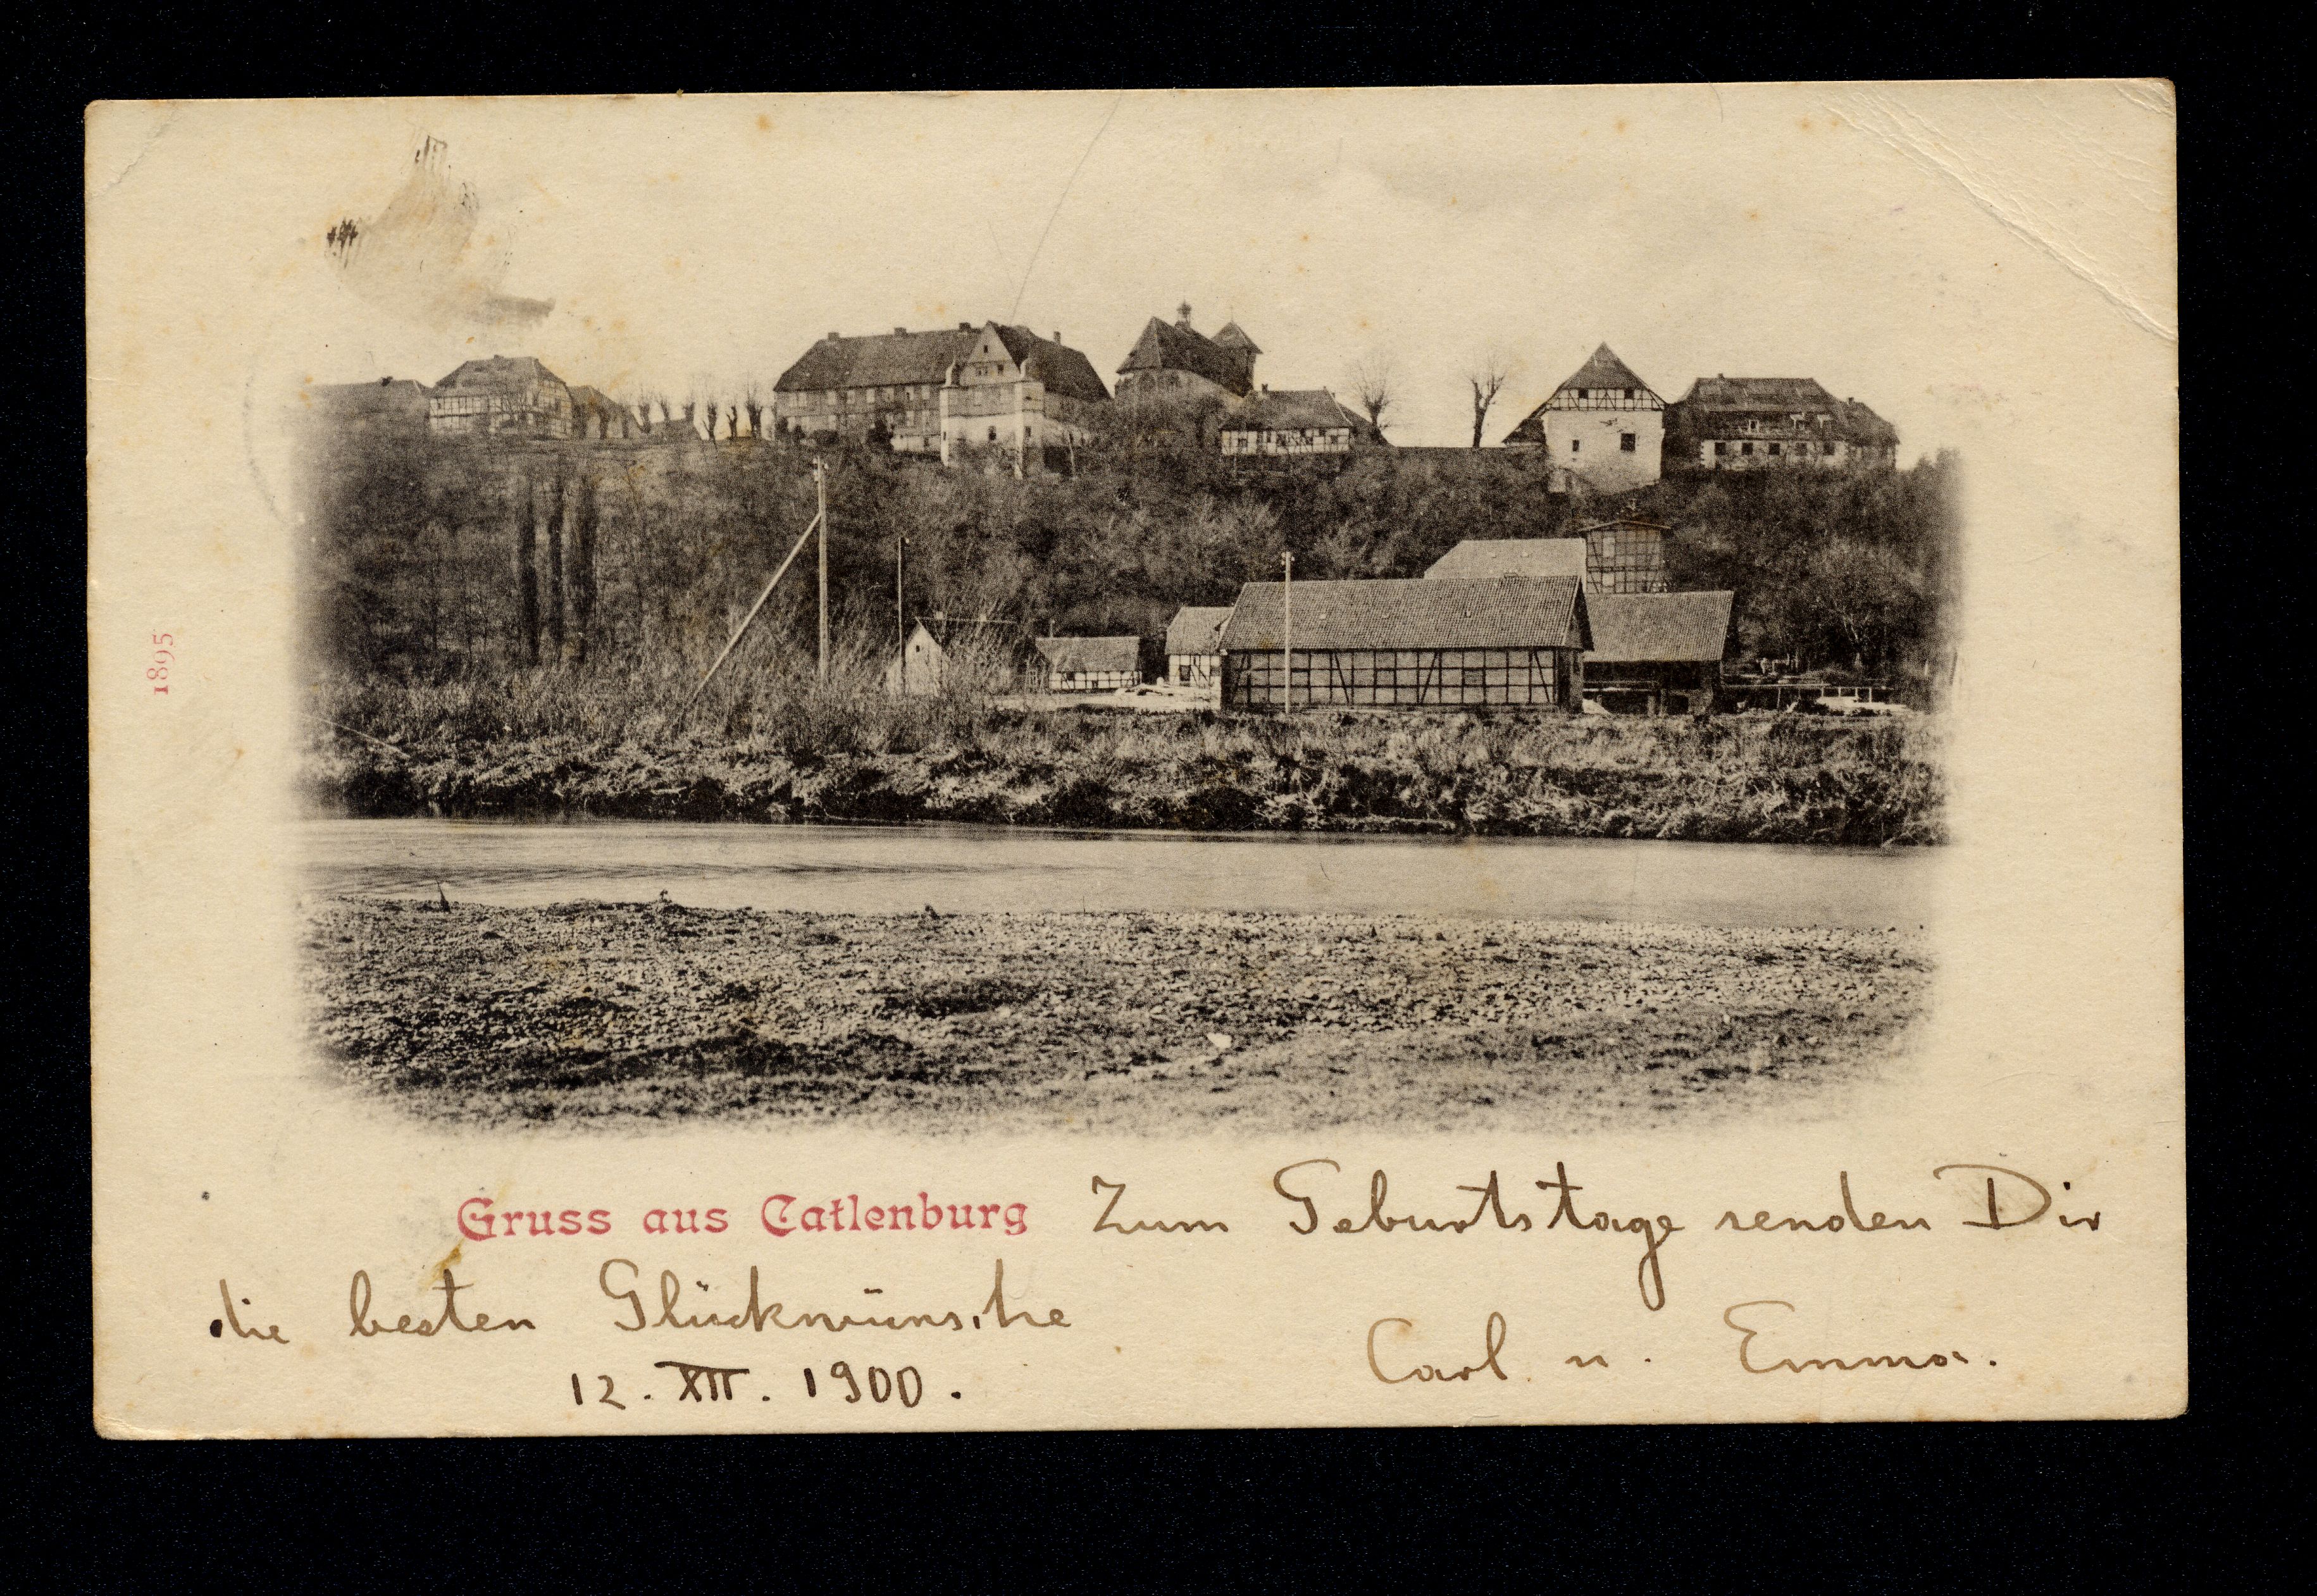 1895
Gruss aus Catlenburg Zum Geburtstage senden Dir
die besten Glückwünsche
Carl u. Emma.
12. XII. 1900.